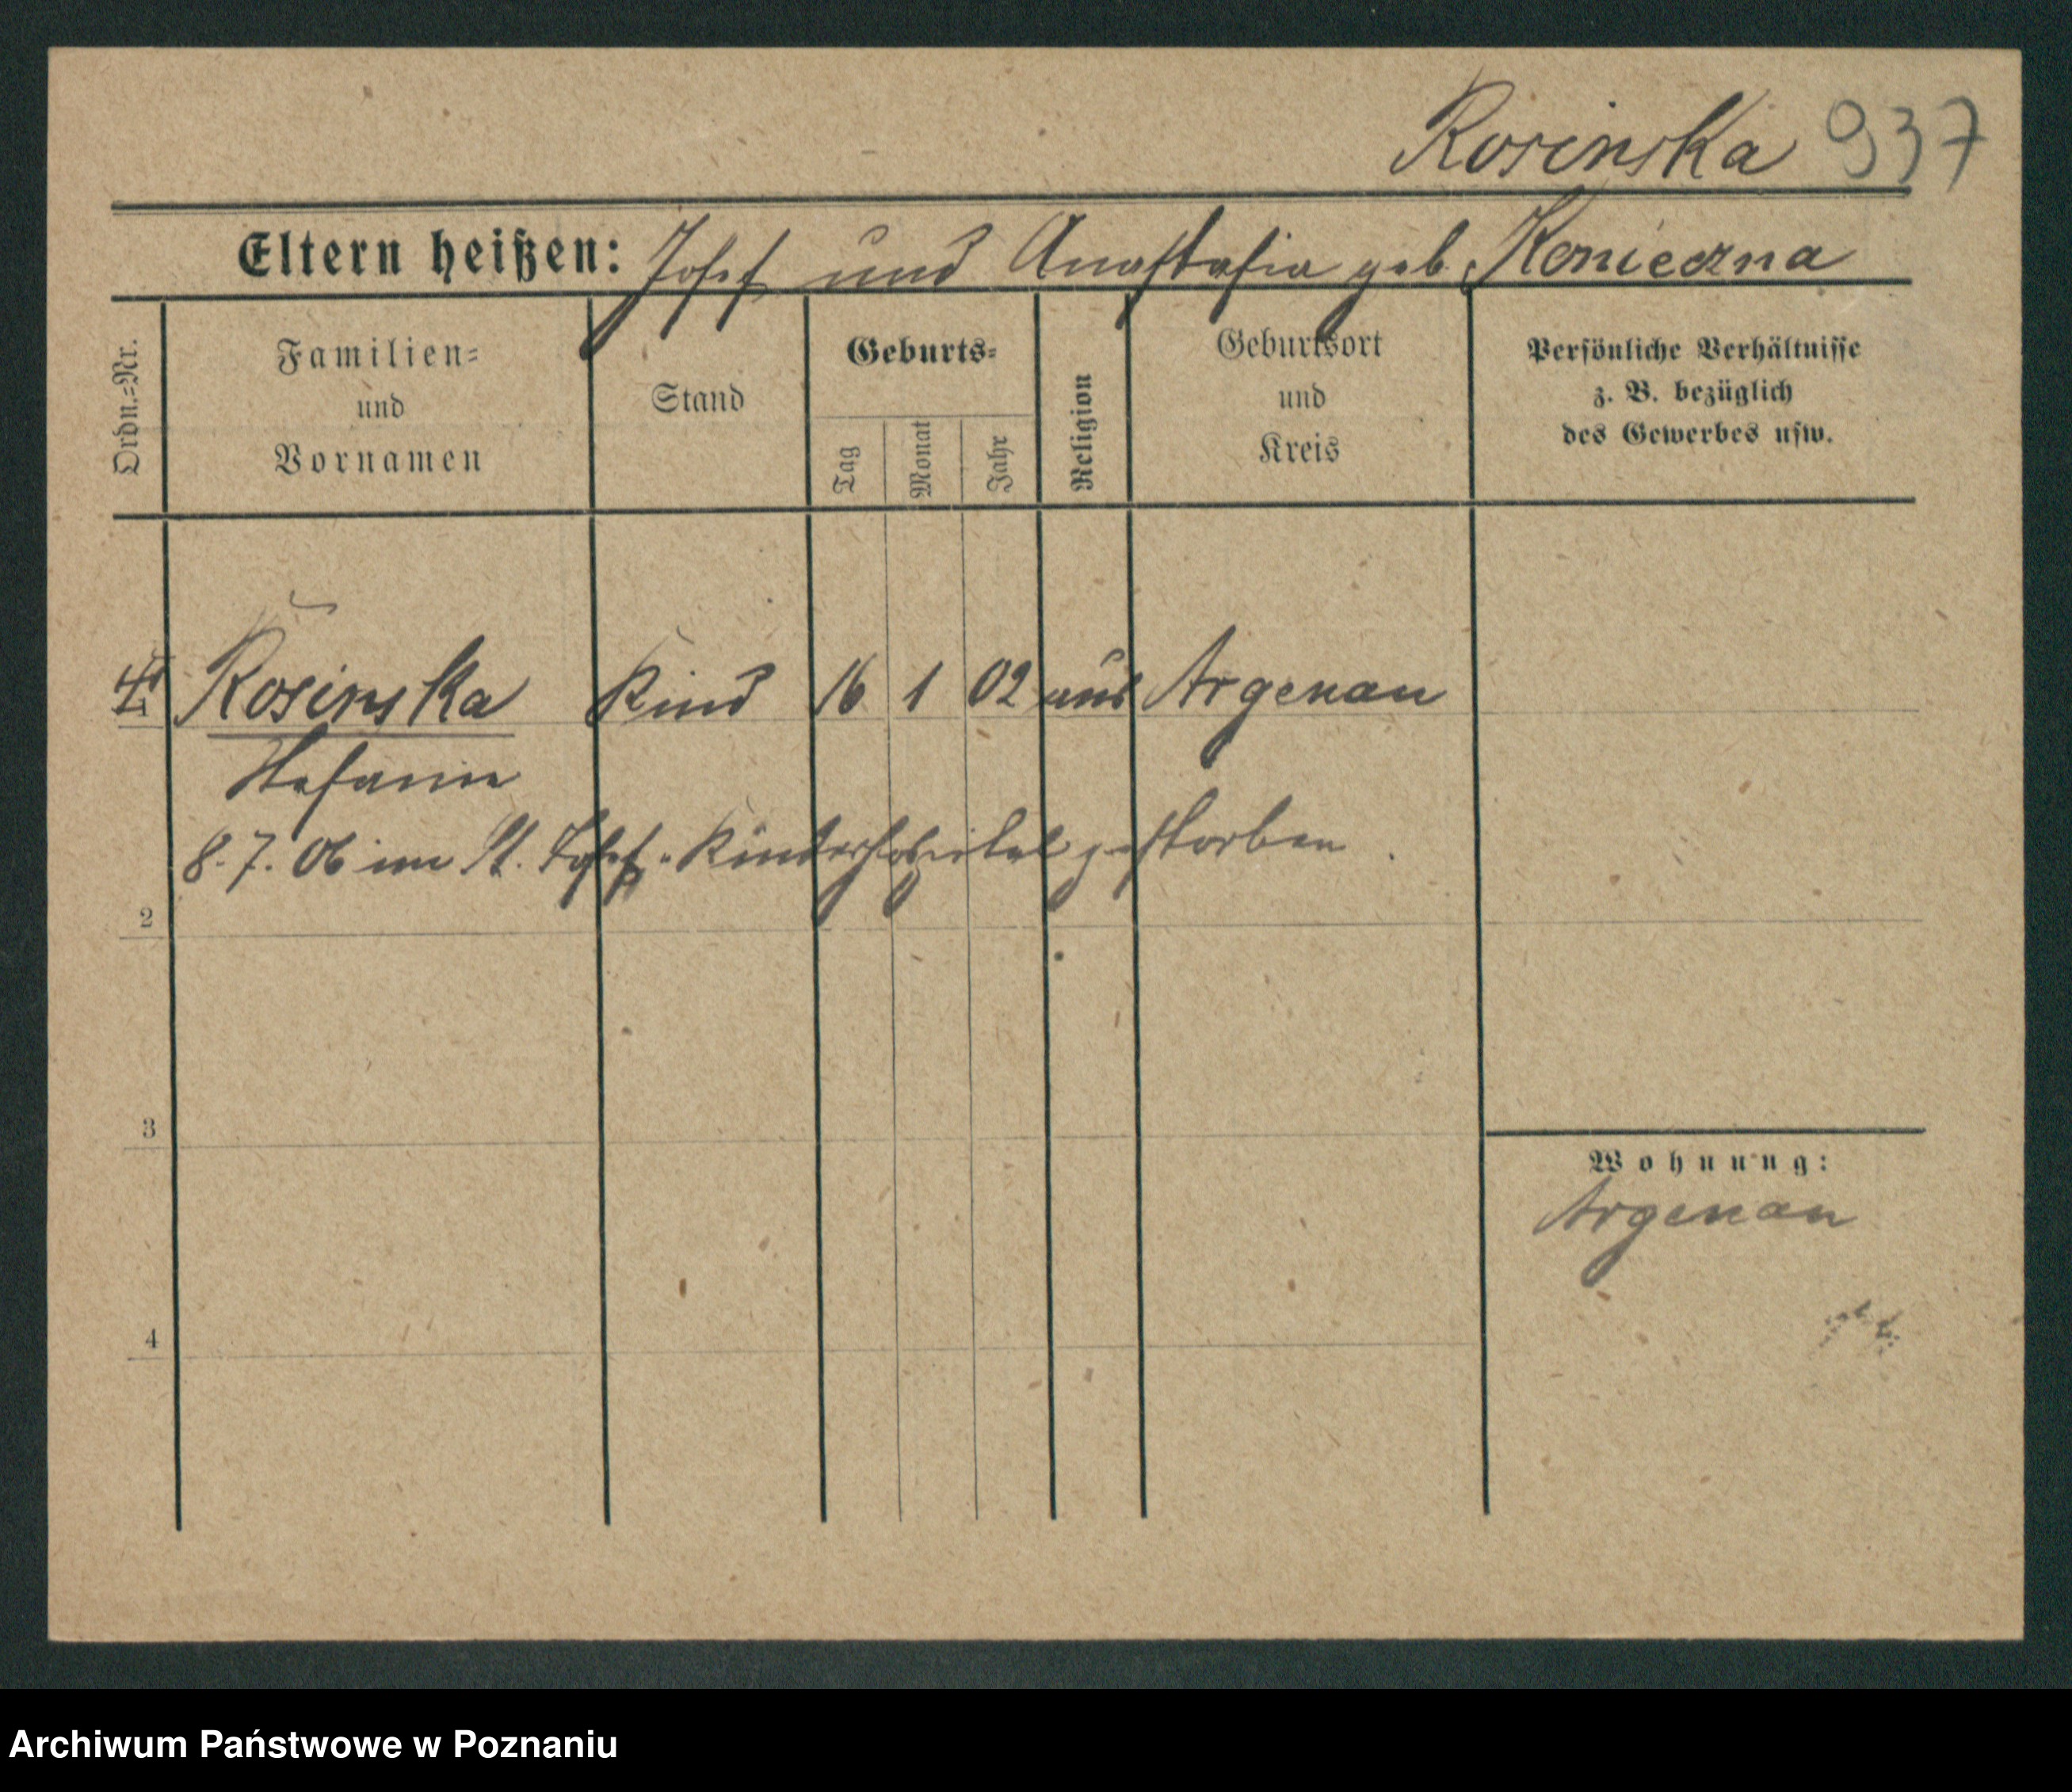 Rosinska 937
Eltern heißen: Josef und Anastasia geb. Konieczna
Ordn.=Nr.
Familien=
und
Vornamen
Stand
Geburts=
Tag
Monat
Jahr
Religion
Geburtsort
und
Kreis
Persönliche Verhältnisse
z. B. bezüglich
des Gewerbes usw.
Rosinska Kind 16 1 02 aus Argenau
Stefanie
8. 7. 06 im St. Josef-Kinderhospital gestorben.
2
3
Wohnung:
Argenau
4
Archiwum Państwowe w Poznaniu